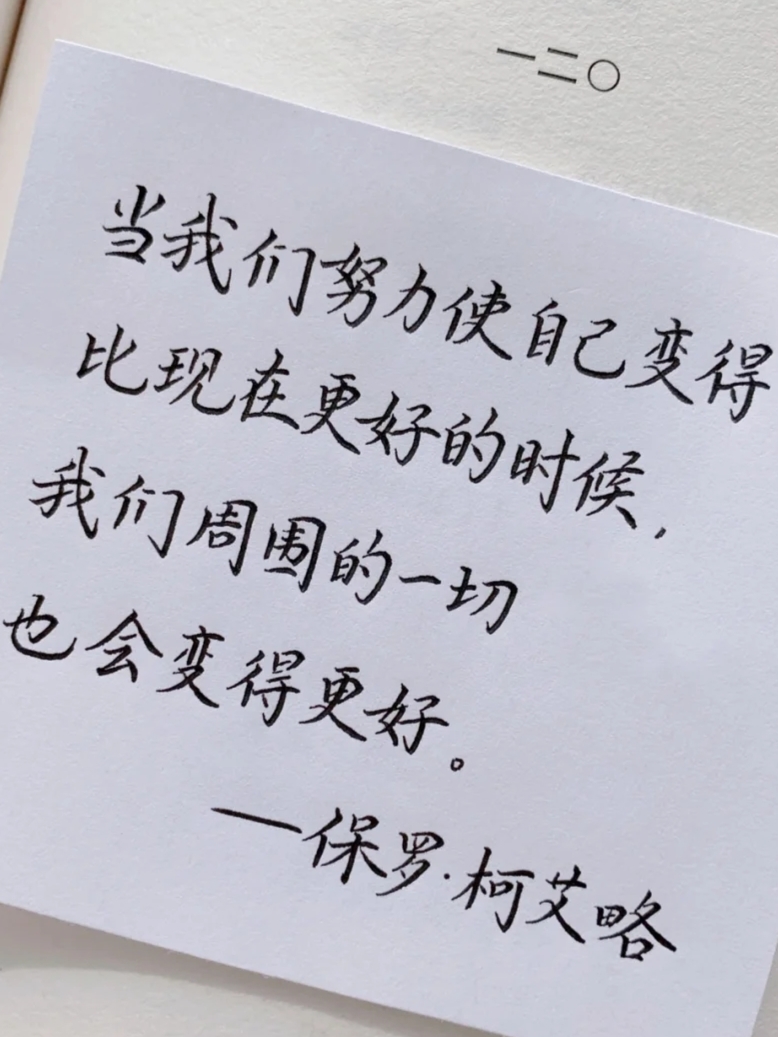 一二〇
当我们努力使自己变得
比现在更好的时候,
我们周围的一切
也会变得更好。
——保罗·柯艾略